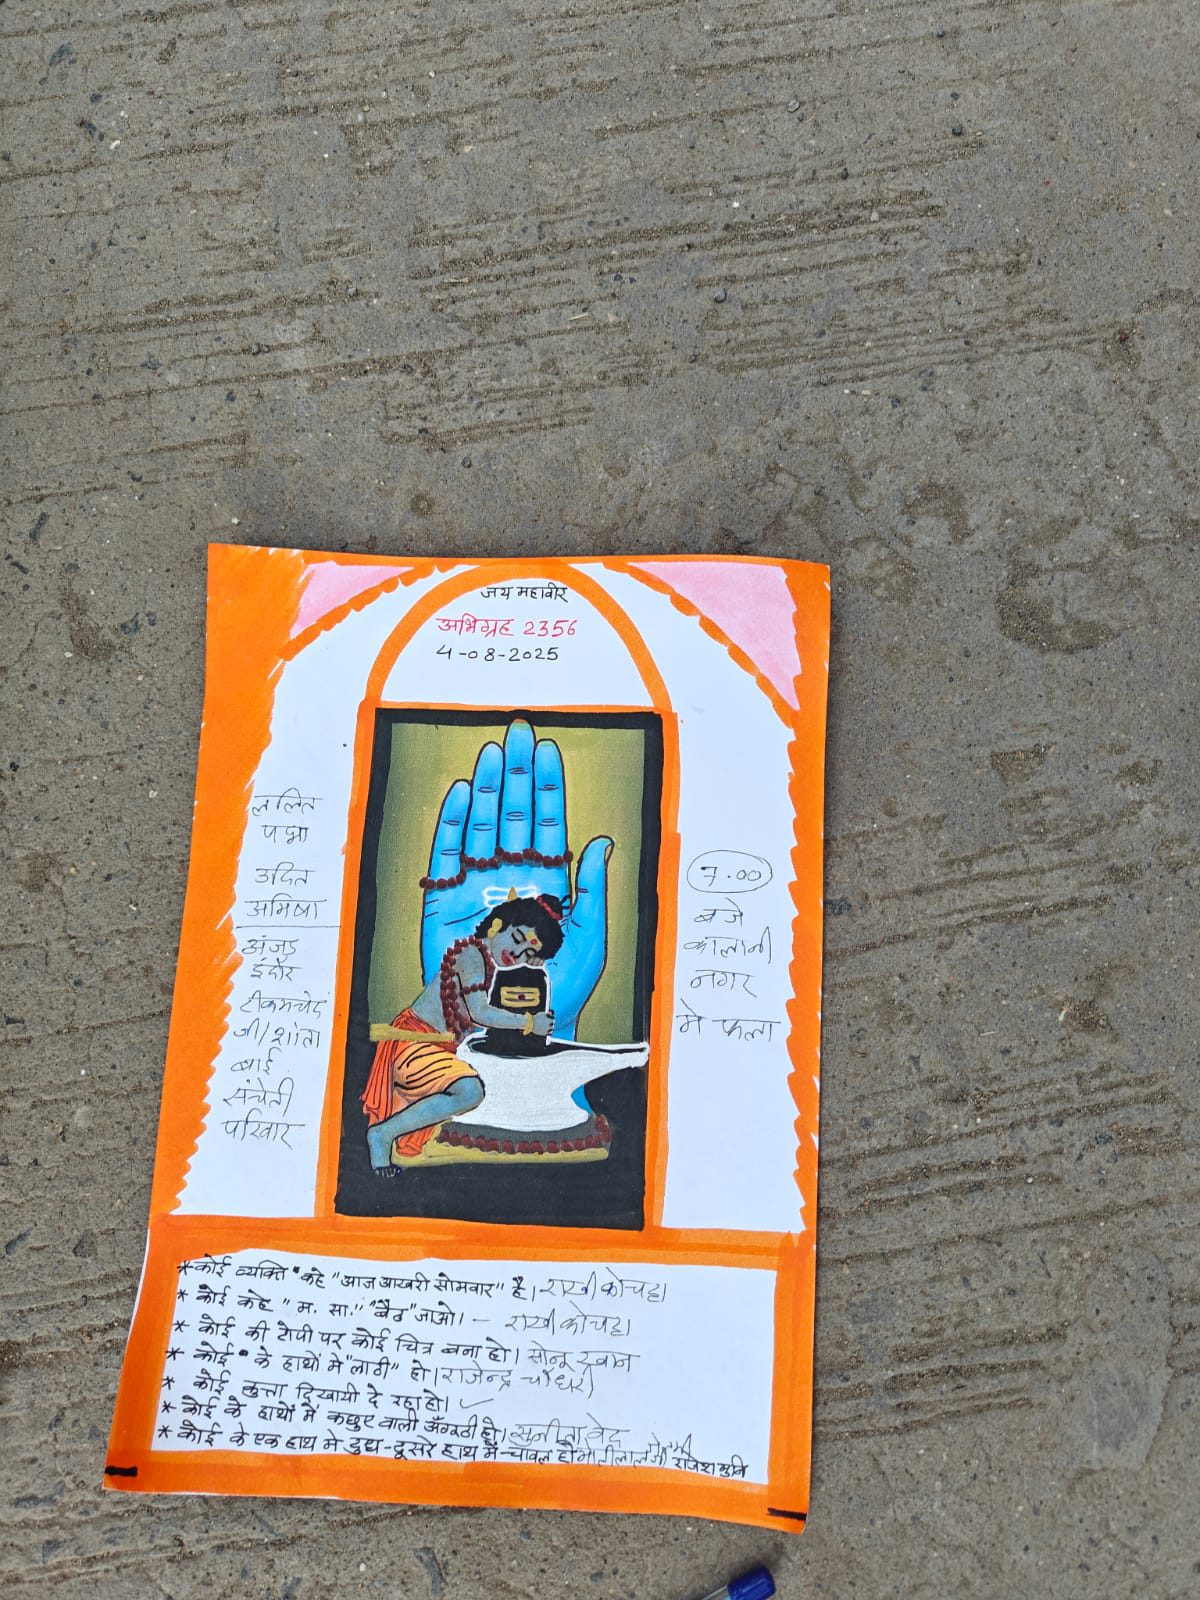 जय महावीर
अभिग्रह 2356
4-08-2025
ललित
पद्मा
उदित
अमिषा
अंजड़
इंदौर
टीकमचंद
जी/शांता
बाई
संचेती
परिवार
7.00
बजे
कालानी
नगर
मे फला
* कोई व्यक्ति कहे "आज आखरी सोमवार" है। राखी कोचट्टा
* कोई कहे "म. सा." "बैठ" जाओ। - राखी कोचट्टा
* कोई की टोपी पर कोई चित्र बना हो। सोनू
* कोई के हाथों में "लाठी" हो। राजेन्द्र चौधरी
* कोई कुत्ता दिखायी दे रहा हो। ✓
* कोई के हाथों में कछुए वाली अँगूठी हो। सुनीता वेद
* कोई के एक हाथ मे दुध-दूसरे हाथ में-चावल हो राजेश मुनि